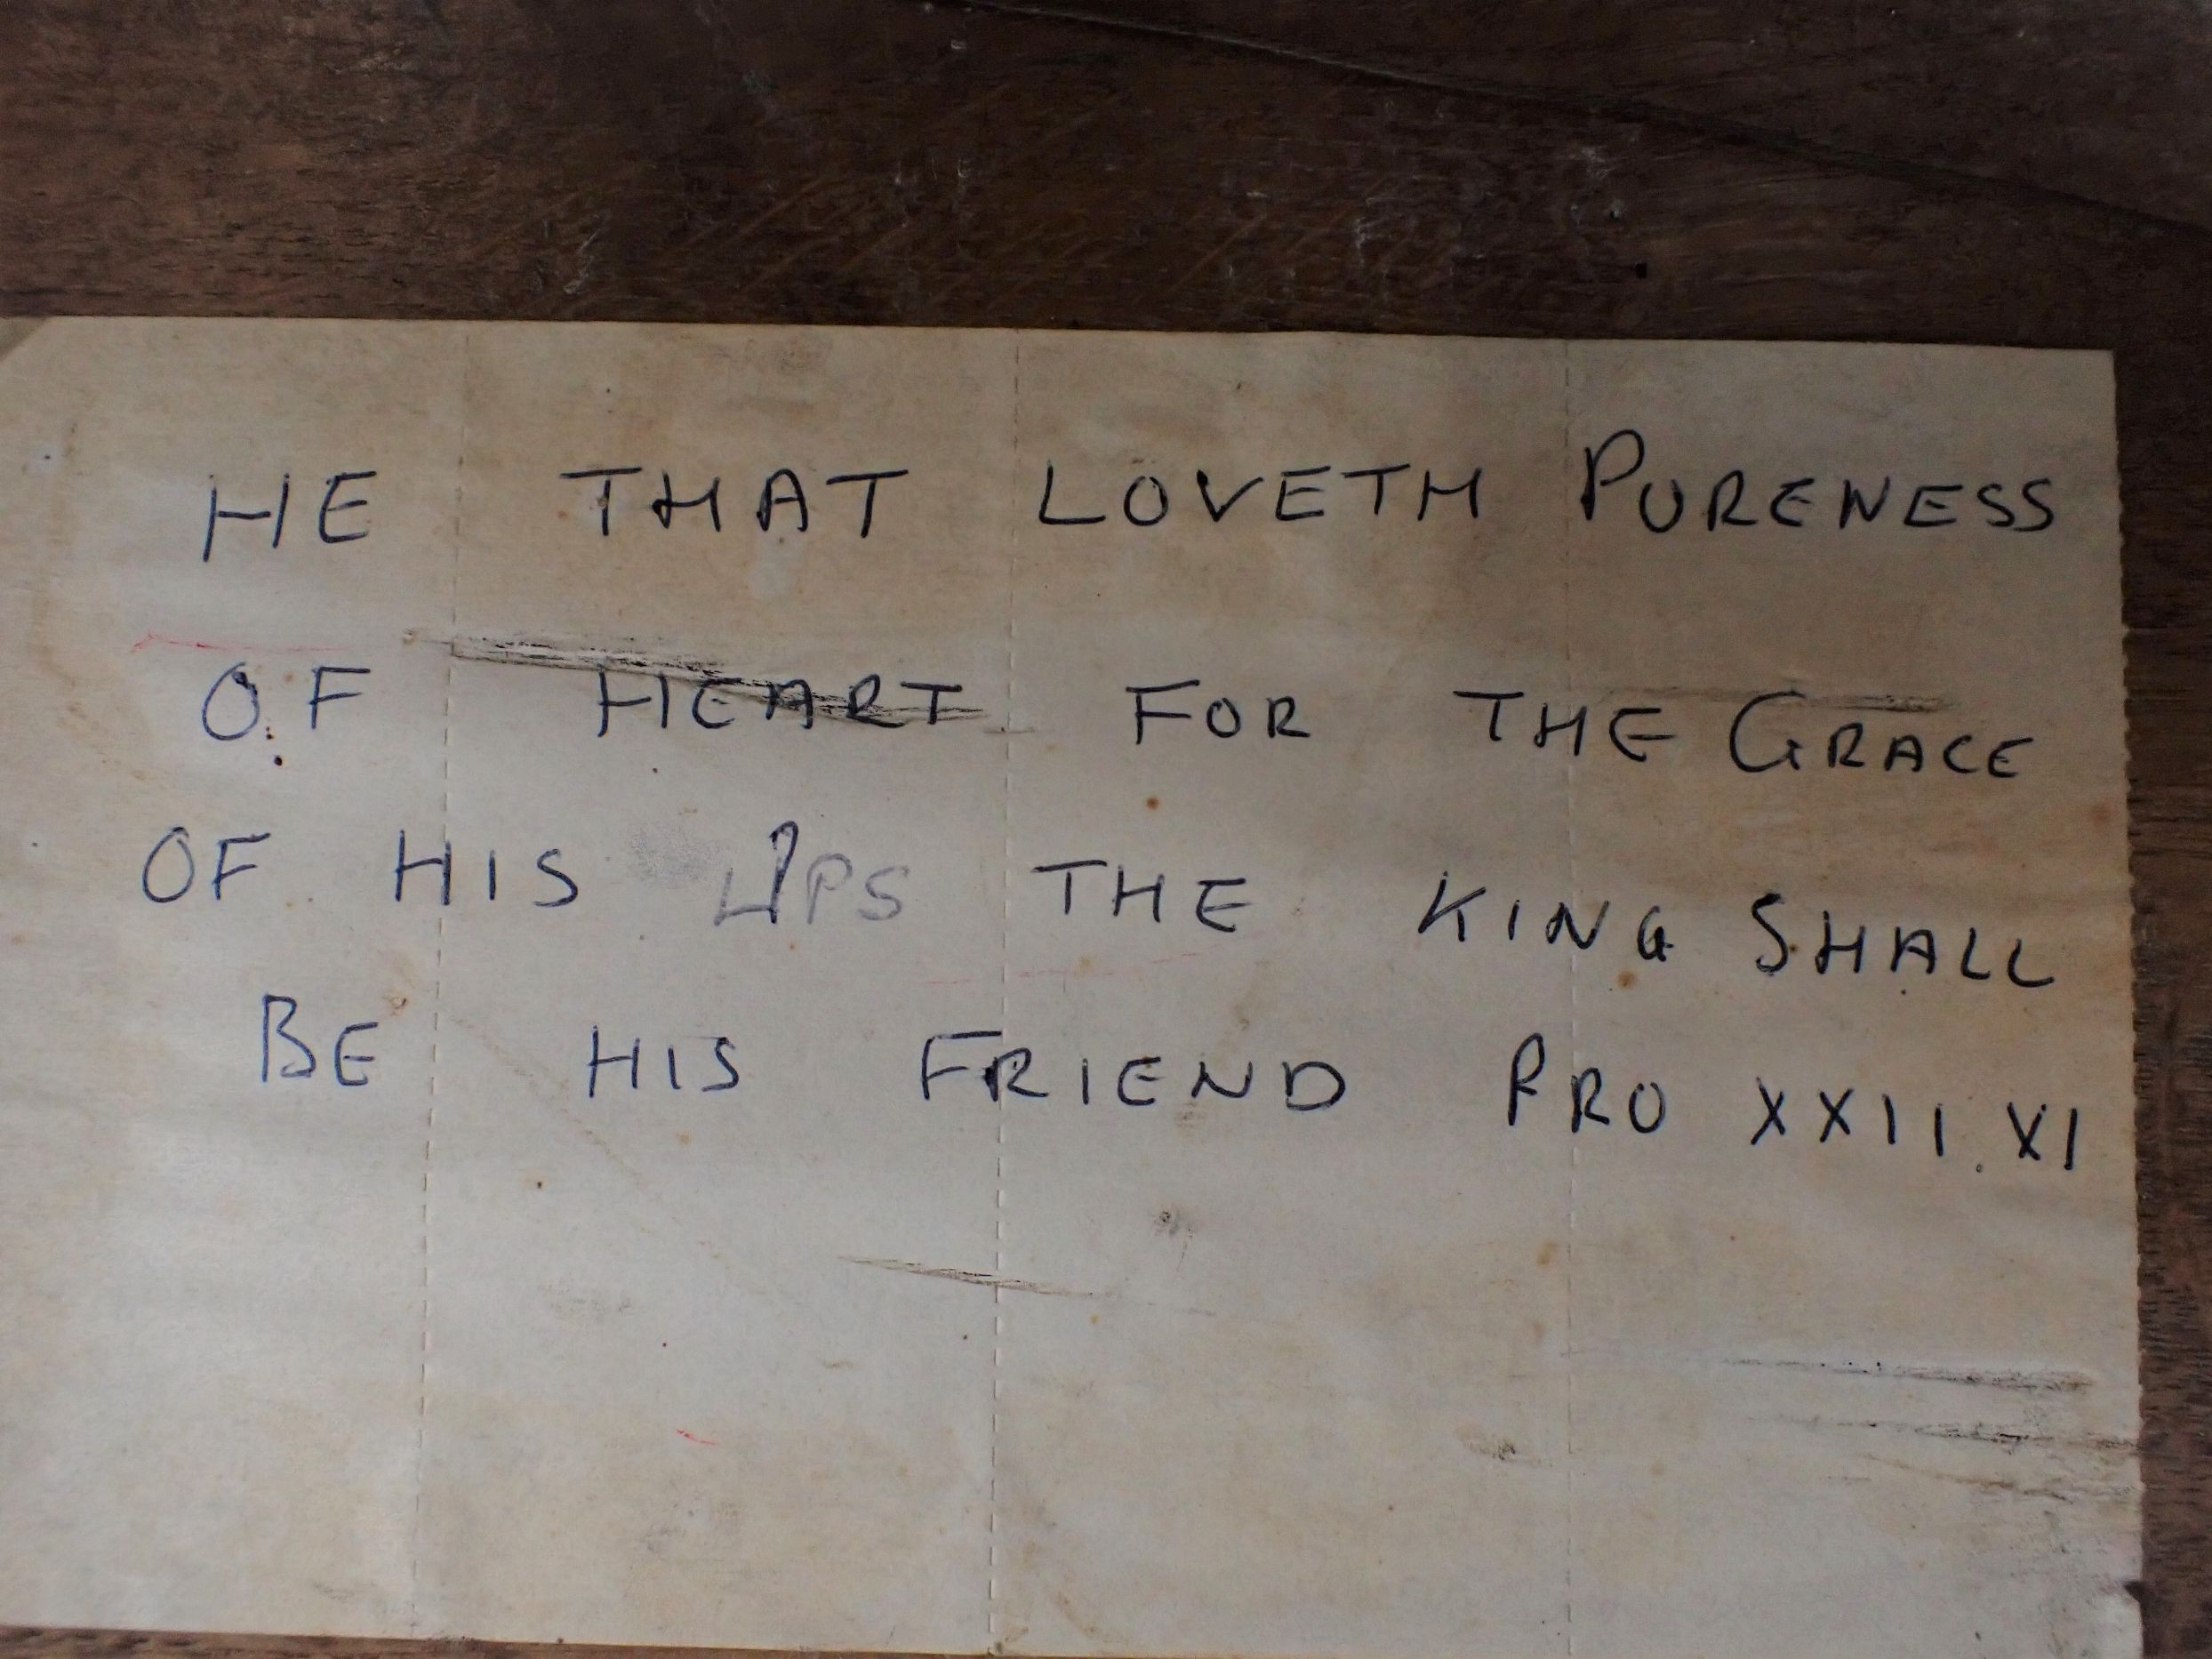 HE THAT LOVETH PURENESS
OF HEART FOR THE GRACE
OF HIS LIPS THE KING SHALL
BE HIS FRIEND PRO XXII.XI